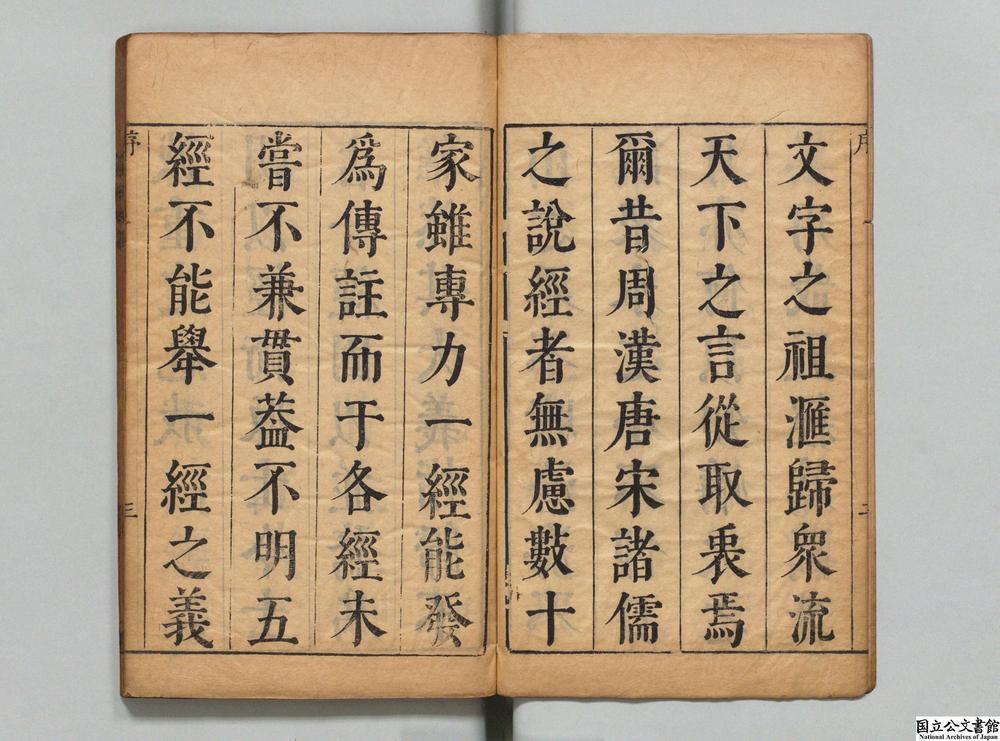 文字之祖滙歸衆流
天下之言從取衷焉
爾昔周漢唐宋諸儒
之說經者無慮數十
家雖專力一經能發
爲傳註而于各經未
嘗不兼貫葢不明五
經不能舉一經之義
序
三
序
二
国立公文書館
National Archives of Japan